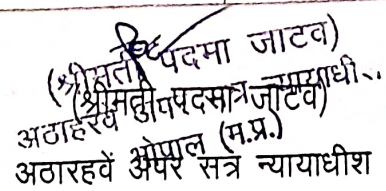 (श्रीमती पदमा जाटव)
(श्रीमती पदमा जाटव)
अठारहवें
भोपाल (म.प्र.)
अठारहवें अपर सत्र न्यायाधीश